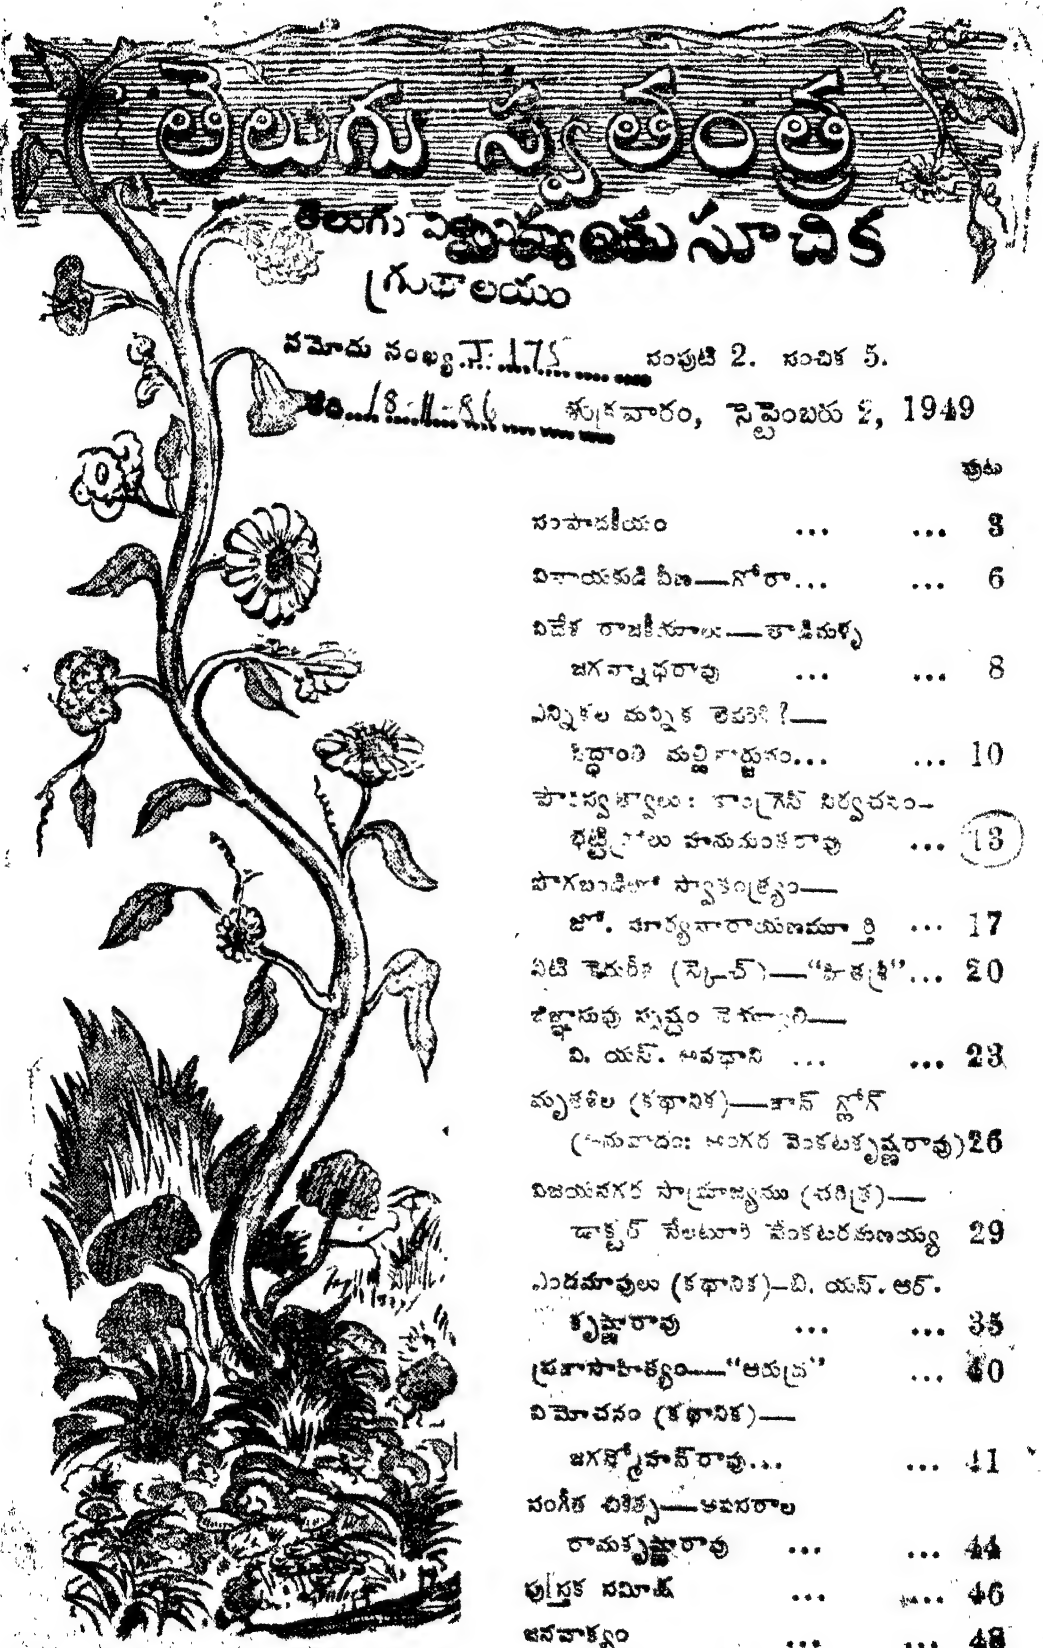 తెలుగు స్వతంత్ర
తెలుగు
విషయసూచిక
గ్రంథాలయం
నమోదు సంఖ్య I. 175 సంపుటి 2. సంచిక 5.
తేది 18-11-86 శుక్రవారం, సెప్టెంబరు 2, 1949
పుట
సంపాదకీయం ... ... 3
వినాయకుడి వీణ—గోరా... ... 6
విదేశ రాజకీయాలు—తాడిమళ్ళ
జగన్నాథరావు ... ... 8
ఎన్నికల మన్నిక లెవరికి?—
సిద్ధాంతి మల్లికార్జునం... ... 10
పౌరస్వత్వాలు: కాంగ్రెస్ నిర్వచనం—
భట్టిప్రోలు హనుమంతరావు ... 13
పొగబండిలో స్వాతంత్ర్యం—
జో. సూర్యనారాయణమూర్తి ... 17
నీటి కెదురీత (స్కెచ్)—“హితశ్రీ”... 20
జిజ్ఞాసువు స్పష్టం చెయ్యాలి—
వి. యస్. అవధాని ... ... 23
మృతశిల (కథానిక)—జాన్ గ్లోగ్
(అనువాదం: అంగర వెంకటకృష్ణరావు) 26
విజయనగర సామ్రాజ్యము (చరిత్ర)—
డాక్టర్ నేలటూరి వేంకటరమణయ్య 29
ఎండమావులు (కథానిక)—బి. యస్. ఆర్.
కృష్ణారావు ... ... 35
ప్రజాసాహిత్యం—“ఆరుద్ర” ... 40
విమోచనం (కథానిక)—
జగన్మోహన్‌రావు... ... 41
సంగీత చికిత్స—అవసరాల
రామకృష్ణారావు ... ... 44
పుస్తక సమీక్ష ... ... 46
జనవాక్యం ... ... 48